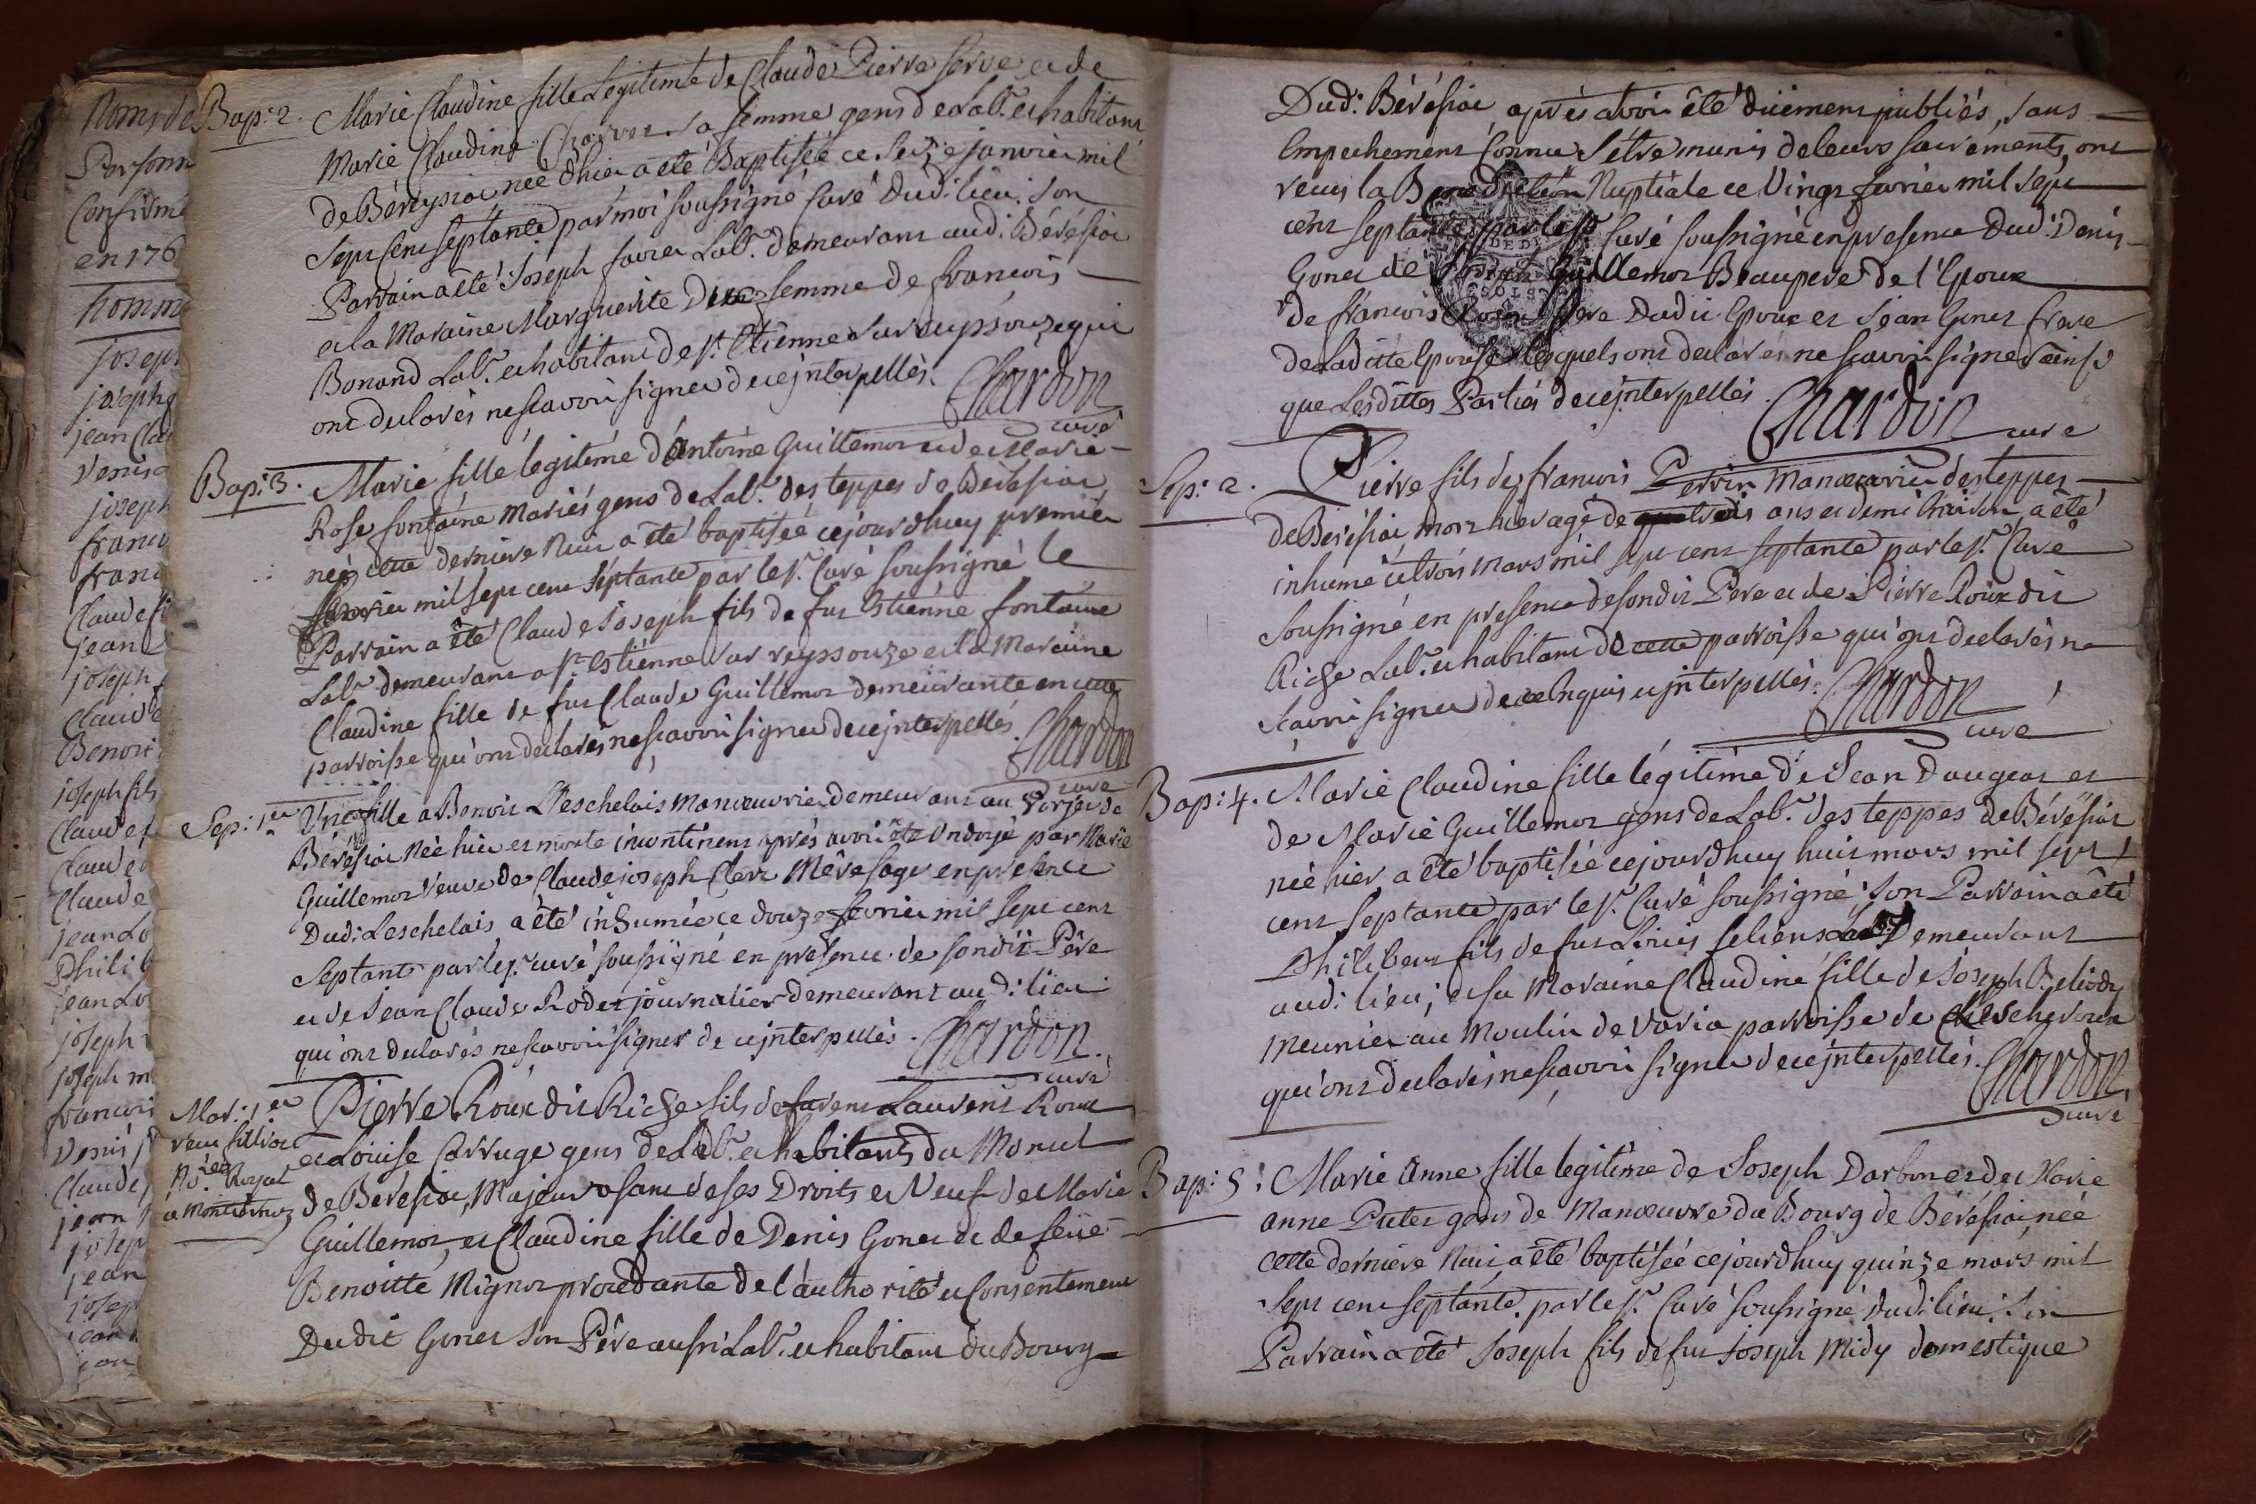 Noms de
Personn
Confirmé
en 176
homme
joseph
joseph
jean Cla
Denis
joseph
franc
franc
Claude fi
jean
joseph
Claude
Benoit
joseph fils
Claude f
Claude
Claude
jean Lo
Philib
jean Lo
joseph
joseph m
francois
Denis
Claude
jean
joseph
jean
joseph
jean
Bap: 2.
Marie Claudine fille Legitime de Claude Pierre Serve et de
Marie Claudine Charvet sa femme gens de Lab.r et habitans
de Béreysia née d'hier a été Baptisée ce Seize janvier mil
Sept Cent Septante par moi soussigné Curé dud: lieu: Son
Parrain a été Joseph favier Lab.r demeurant aud: Bérésiat
et la Maraine Marguerite femme de francois
Bonand Lab.r et habitant de s.t Etienne sur reyssouze qui
ont declarés ne scavoir signer de ce jnterpellés.
Chardon
curé
Bap: 3.
Marie fille légitime d'Antoine Guillemot et de Marie
Rose fontaine Mariés gens de Lab.r des teppes de Bérésiat
née cette derniere Nuit a été baptisée cejourdhuy premier
fevrier mil sept cent séptante par le s.r Curé soussigné le
Parrain a été Claude joseph fils de fut Estienne fontaine
Lab.r demeurant a s.t Estienne sur reyssouze et la Maraine
Claudine fille de fut Claude Guillemot demeurante en cette
parroisse qui ont declarés ne scavoir signer de ce jnterpellés.
Chardon
curé
Sep: 1.er
Une fille a Benoit Leschelais Manoeuvrier demeurant au de
Bérésiat Née hier et morte incontinent après avoir été Undoyé par Marie
Guillemot Veuve de Claude joseph Clerc Mère sage en presence
Dud: Leschelais a été inhumée ce douze fevrier mil sept cent
Septante par le s.r curé soussigné en presence de sondit Père
et de Jean Claude Rodet journalier demeurant aud: lieu
qui ont declarés ne scavoir signer de ce jnterpellés.
Chardon
curé
Mar: 1.er
reçu
Royal
a Montrevel
Pierre Roux dit Riche fils de Laurent Roux
et Loüise Carruge gens de Lab.r et habitants du Monut
de Bérésiat, Majeur usant de ses Droits et Veuf de Marie
Guillemot, et Claudine fille de Denis Gonet et de feüe
Benoitte Mignot procedante de l'authorité et Consentement
Dudit Gonet Son Père aussi Lab.r et habitant du Bourg
Dud: Bérésiat, après avoir été düement publiés, sans
Empechement Connu S'être munis de leurs sacrements, ont
recus la Benediction Nuptiale ce Vingt fevrier mil sept
cent Septante par le s.r Curé soussigné en presence Dud: Denis
Gonet de Guillemot Beaupere de l'Epoux
de francois frere Dudit Epoux et Jean Gonet frere
de Laditte Epouse, Lesquels ont declarés ne scavoir signer ainsi
que Lesdittes Parties de ce jnterpellés.
Chardon
curé
Sep: 2.
Pierre fils de francois Perrin Manoeuvrier des teppes
de Bérésiat mort hier agé de ans et demi a été
inhumé ce trois Mars mil sept cent septante par le s.r Curé
soussigné en presence de sondit Père et de Pierre Roux dit
Riche Lab.r et habitant de cette parroisse qui ont declarés ne
scavoir signer de ce Enquis et jnterpellés.
Chardon
curé
Bap: 4.
Marie Claudine fille légitime de Jean Daugeat et
de Marie Guillemot gens de Lab.r des teppes de Bérésiat
née hier a été baptisée cejourdhuy huit mars mil sept
cent septante par le s.r Curé soussigné; Son Parrain a été
Philibert fils de fut Loüis feliens Lab.r Demeurant
aud: lieu; et sa Maraine Claudine fille de Joseph
Meunier au Moulin de Varia parroisse de Chescheroux
qui ont declarés ne scavoir signer de ce jnterpellés.
Chardon
curé
Bap: 5:
Marie Anne fille legitime de Joseph Darbon et de Marie
anne Putet gens de Manoeuvre du Bourg de Bérésiat, née
cette derniere Nuit a été baptisée cejourdhuy quinze mars mil
sept cent septante par le s.r Curé soussigné dud: lieu: Son
Parrain a été Joseph fils de fut Joseph Midy domestique